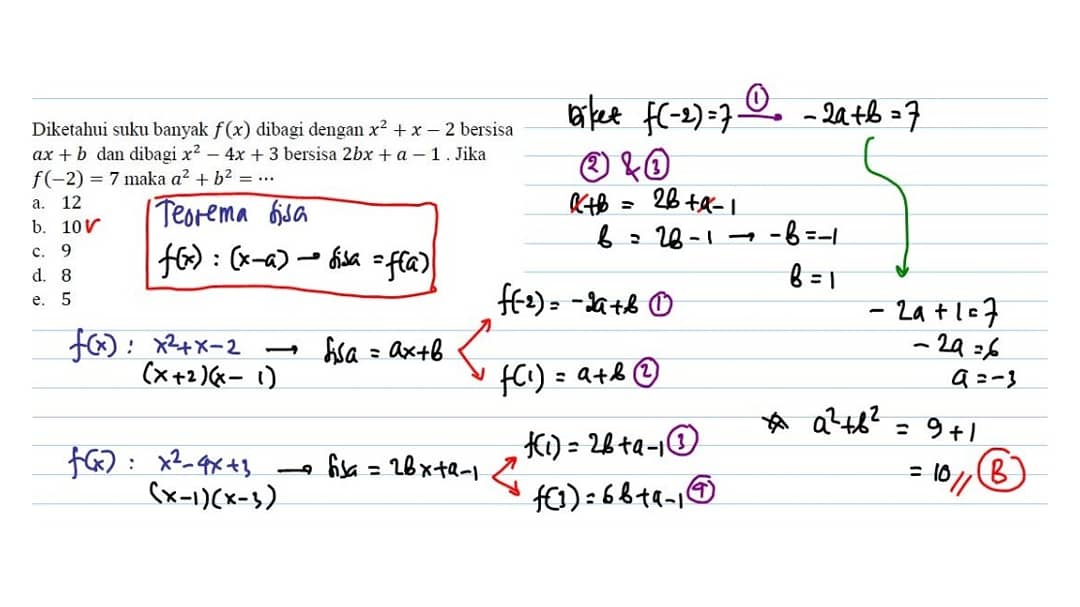 Diketahui suku banyak f(x) dibagi dengan x² + x − 2 bersisa
ax + b dan dibagi x² − 4x + 3 bersisa 2bx + a − 1 . Jika
f(−2) = 7 maka a² + b² = ⋯
a. 12
b. 10 ✓
c. 9
d. 8
e. 5
Teorema sisa
f(x) : (x-a) → sisa = f(a)
f(x) : x²+x-2 → sisa = ax+b
(x+2)(x-1)
f(-2) = -2a+b ①
f(1) = a+b ②
f(x) : x²-4x+3 → sisa = 2bx+a-1
(x-1)(x-3)
f(1) = 2b+a-1 ③
f(3) = 6b+a-1 ④
Diket f(-2)=7 ① -2a+b=7
② & ③
a+b = 2b+a-1
b = 2b-1 → -b=-1
b=1
-2a+1=7
-2a=6
a=-3
☆ a²+b² = 9+1
= 10 // B